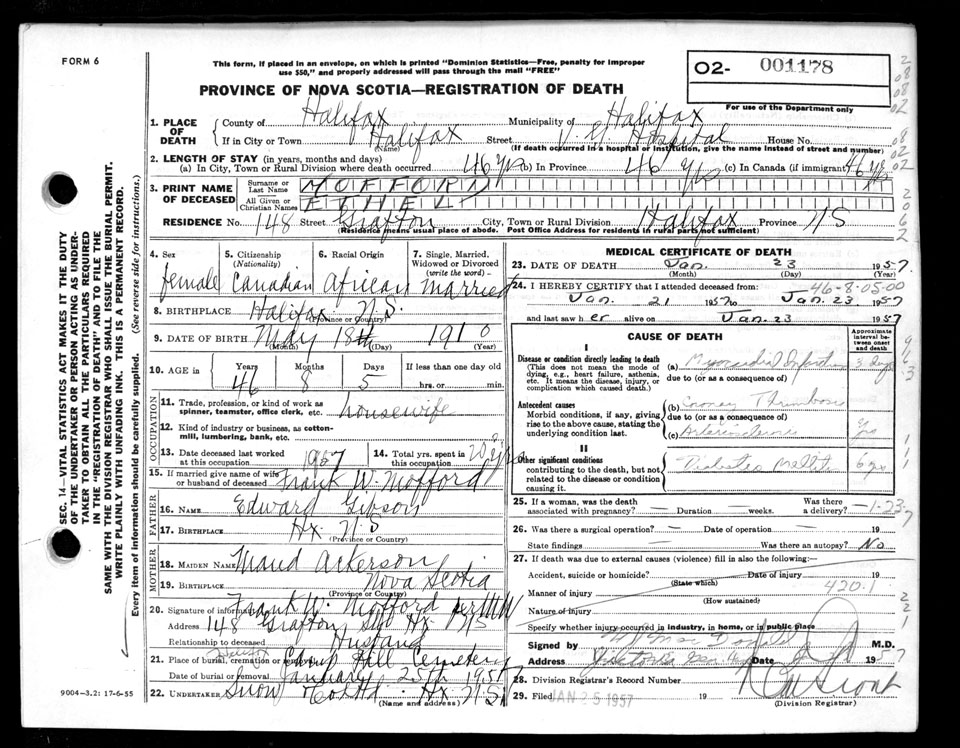 FORM 6
This form, if placed in an envelope, on which is printed "Dominion Statistics—Free, penalty for improper
use $50," and properly addressed will pass through the mail "FREE"
O2- 001178
PROVINCE OF NOVA SCOTIA—REGISTRATION OF DEATH
For use of the Department only
1. PLACE OF DEATH
County of Halifax Municipality of Halifax
If in City or Town Halifax (Name) Street V.G. Hospital House No.
(If death occurred in a hospital or institution, give the name instead of street and number)
2. LENGTH OF STAY (in years, months and days)
(a) In City, Town or Rural Division where death occurred 46 yrs (b) In Province 46 yrs (c) In Canada (if immigrant) 46 yrs
3. PRINT NAME OF DECEASED
Surname or Last Name MOFFORD
All Given or Christian Names ETHEL
RESIDENCE No. 148 Street Grafton City, Town or Rural Division Halifax Province NS
(Residence means usual place of abode. Post Office Address for residents in rural parts not sufficient)
4. Sex female
5. Citizenship (Nationality) Canadian
6. Racial Origin African
7. Single, Married, Widowed or Divorced (write the word) married
8. BIRTHPLACE Halifax N.S. (Province or Country)
9. DATE OF BIRTH May (Month) 18th (Day) 1910 (Year)
10. AGE in Years 46 Months 8 Days 5 If less than one day old hrs. or min.
OCCUPATION
11. Trade, profession, or kind of work as spinner, teamster, office clerk, etc. housewife
12. Kind of industry or business, as cotton-mill, lumbering, bank, etc.
13. Date deceased last worked at this occupation 1957
14. Total yrs. spent in this occupation 20 yrs
15. If married give name of wife or husband of deceased Frank W. Mofford
FATHER
16. NAME Edward Gibson
17. BIRTHPLACE Hx. N.S (Province or Country)
MOTHER
18. MAIDEN NAME Maud Ackerson
19. BIRTHPLACE Nova Scotia (Province or Country)
20. Signature of informant Frank W. Mofford per
Address 148 Grafton St Hx. NS
Relationship to deceased Husband
21. Place of burial, cremation or removal Halifax Camp Hill Cemetery
Date of burial or removal January 25th 1957
22. UNDERTAKER Snow & Co Ltd. Hx. N.S.
(Name and address)
MEDICAL CERTIFICATE OF DEATH
23. DATE OF DEATH Jan. (Month) 23 (Day) 1957 (Year)
24. I HEREBY CERTIFY that I attended deceased from: 46-8-05.00
Jan. 21 1957 to Jan. 23 1957
and last saw her alive on Jan. 23 1957
CAUSE OF DEATH
Approximate interval between onset and death
I
Disease or condition directly leading to death
(This does not mean the mode of dying, e.g., heart failure, asthenia, etc. It means the disease, injury, or complication which caused death.)
(a) Myocardial Infarction 3 days
due to (or as a consequence)
Antecedent causes
Morbid conditions, if any, giving rise to the above cause, stating the underlying condition last.
(b) Coronary Thrombosis
due to (or as a consequence)
(c) Arteriosclerosis yrs
II
Other significant conditions
contributing to the death, but not related to the disease or condition causing it.
Diabetes Mellit 6 yrs
25. If a woman, was the death associated with pregnancy? — Duration — weeks. Was there a delivery? —
1-23-7
26. Was there a surgical operation? — Date of operation — 19
State findings Was there an autopsy? No
27. If death was due to external causes (violence) fill in also the following:—
Accident, suicide or homicide? (State which) Date of injury 19
Manner of injury (How sustained) 420.1
Nature of injury
Specify whether injury occurred in industry, in home, or in public place
Signed by M.D.
Address Victoria Gen. Date 1957
28. Division Registrar's Record Number
29. Filed JAN 25 1957 19
(Division Registrar)
SEC. 14—VITAL STATISTICS ACT MAKES IT THE DUTY
OF THE UNDERTAKER OR PERSON ACTING AS UNDER-
TAKER TO OBTAIN ALL THE PARTICULARS REQUIRED
IN THE "REGISTRATION OF DEATH" AND TO FILE THE
SAME WITH THE DIVISION REGISTRAR WHO SHALL ISSUE THE BURIAL PERMIT.
WRITE PLAINLY WITH UNFADING INK. THIS IS A PERMANENT RECORD.
Every item of information should be carefully supplied. (See reverse side for instructions.)
9004-3.2: 17-6-55